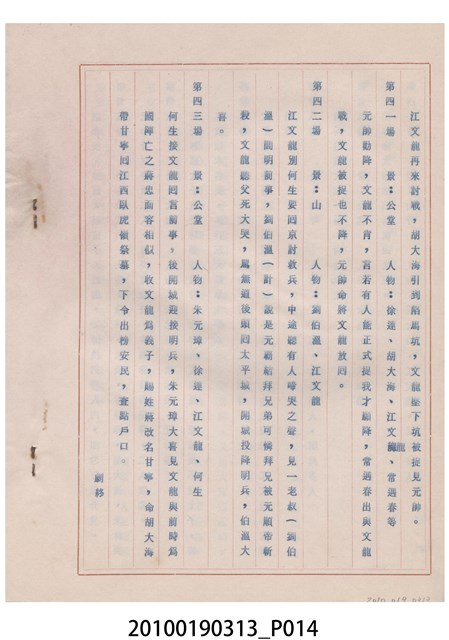 江文龍再來討戰，胡大海引到陷馬坑，文龍墜下坑被捉見元帥。
第四一場　景：公堂　人物：徐達、胡大海、江文龍、常遇春等
元帥勸降，文龍不肯，言若有人能正式捉我才願降，常遇春出與文龍
戰，文龍被捉也不降，元帥命將文龍放回。
第四二場　景：山　人物：劉伯溫、江文龍
江文龍別何生要回京討救兵，中途聽有人啼哭之聲，見一老叔（劉伯
溫）問明前事，劉伯溫（計）說是元朝結拜兄弟可憐拜兄被元順帝斬
殺，文龍聽父死大哭，罵無道後頭回太平城，開城投降明兵，伯溫大
喜。
第四三場　景：公堂　人物：朱元璋、徐達、江文龍、何生
何生接文龍回言前事，後開城迎接明兵，朱元璋大喜見文龍與前時為
國陣亡之蔣忠面容相似，收文龍為義子，賜姓蔣改名甘寧，命胡大海
帶甘寧回江西臥虎嶺祭墓，下令出榜安民，查點戶口。
劇終
20100190313_P014